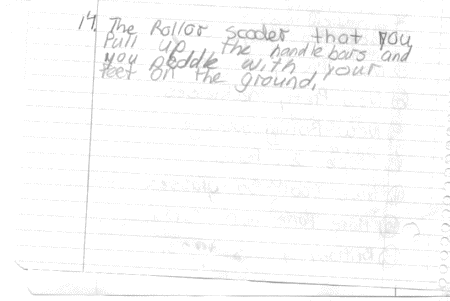 14. The Rollor scooder that you
Pull up the handlebars and
you peddle with your
feet on the ground.